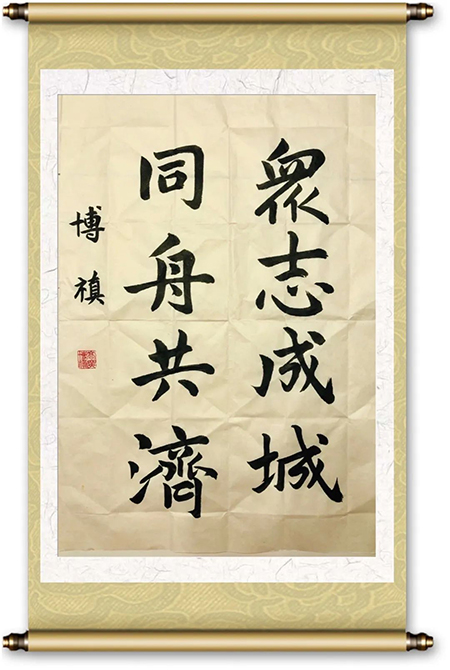 眾志成城
同舟共濟
博禛